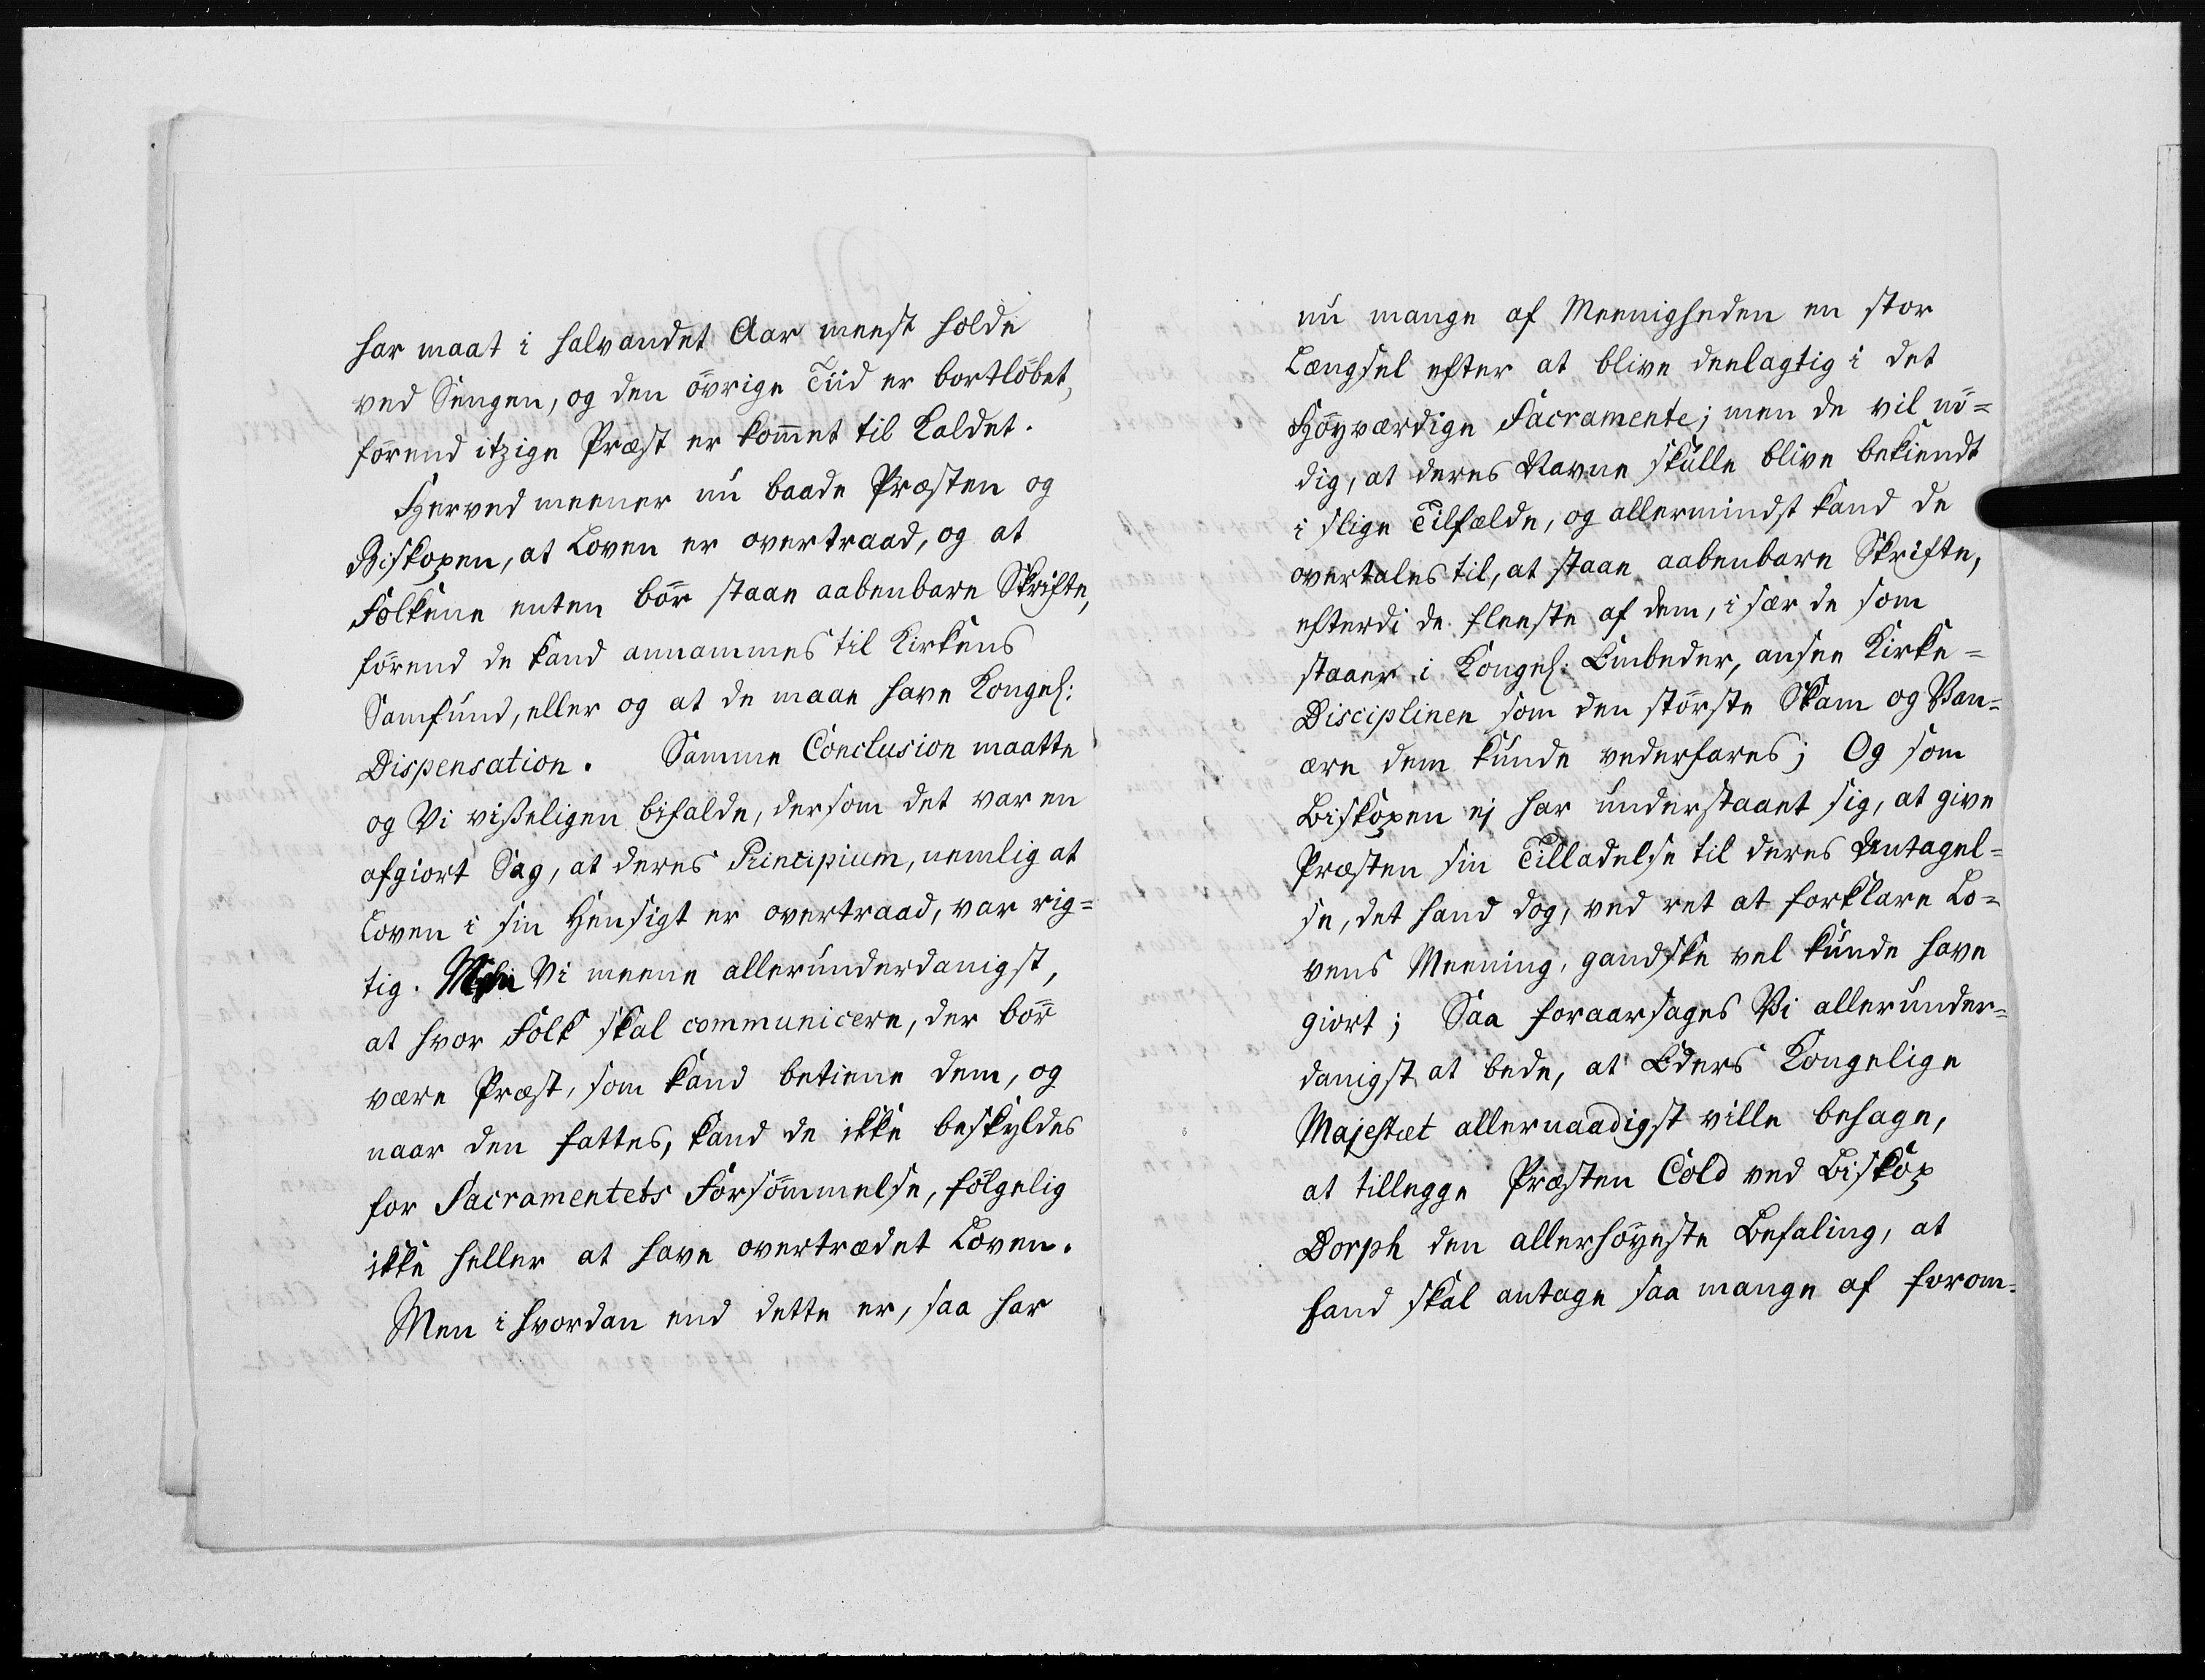 har maat i halvandet Aar meest holde
ved Sengen, og den övrige Tiid er bortlöbet,
förend itzige Præst er kommet til Kaldet.
Herved meener nu baade Præsten og
Biskopen, at Loven er overtraad, og at
Folkene enten bör staae aabenbare Skrifte,
förend de kand annammes til Kirkens
Samfund, eller og at de maae have Kongel:
Dispensation. Samme Conclusion maatte
og Vi visseligen bifalde, dersom det var en
afgiort Sag, at deres Principium, nemlig at
Loven i sin Hensigt er overtraad, var rig=
tig. Men Vi meene allerunderdanigst,
at hvor Folk skal communicere, der bör
være Præst, som kand betiene dem, og
naar den fattes, kand de ikke beskyldes
for Sacramentets Forsömmelse, fölgelig
ikke heller at have overtrædet Loven.
Men i hvordan end dette er, saa har
nu mange af Meenigheden en stor
Længsel efter at blive deelagtig i det
Höyværdige Sacramente; men de vil nö=
dig, at deres Navne skulle blive bekiendt
i slige Tilfælde, og allermindst kand de
overtales til, at staae aabenbare Skrifte,
efterdi de fleeste af dem, i sær de som
staaer i Kongel: Embeder, ansee Kirke=
Disciplinen som den störste Skam og Van=
ære dem kunde vederfares; Og som
Biskopen ej har understaaet sig, at give
Præsten sin Tilladelse til deres Antagel=
se, det hand dog, ved ret at forklare Lo=
vens Meening, gandske vel kunde have
giort; Saa foraarsages Vi allerunder=
danigst at bede, at Eders Kongelige
Majestæt allernaadigst ville behage,
at tillegge Præsten Cold ved Biskop
Dorph den allerhöyeste Befaling, at
hand skal antage saa mange af forom-